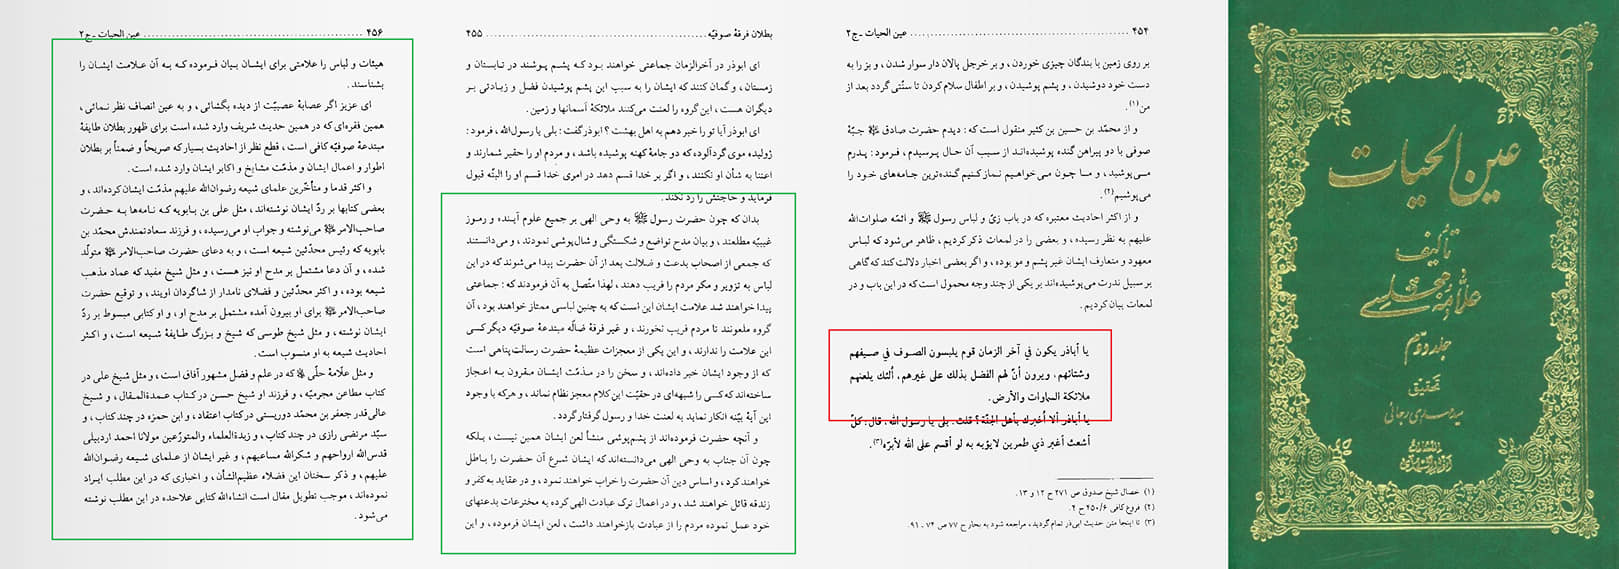 ۴۵۴ ........ عین الحیات ـ ج۲
بر روی زمین با بندگان چیزی خوردن ، و بر خرجل پالان دار سوار شدن ، و بز را به
دست خود دوشیدن ، و پشم پوشیدن ، و بر اطفال سلام کردن تا سنّتی گردد بعد از
من(۱).
و از محمّد بن حسین بن کثیر منقول است که : دیدم حضرت صادق ﷺ جبّهٔ
صوفی با دو پیراهن گنده پوشیده‌اند از سبب آن حال پرسیدم ، فرمود : پدرم
می‌پوشید ، و ما چون می‌خواهیم نماز کنیم گنده‌ترین جامه‌های خود را
می‌پوشیم(۲).
و از اکثر احادیث معتبره که در باب زیّ و لباس رسول ﷺ و ائمّه صلوات‌الله
علیهم به نظر رسیده ، و بعضی را در لمعات ذکر کردیم ، ظاهر می‌شود که لباس
معهود و متعارف ایشان غیر پشم و مو بوده ، و اگر بعضی اخبار دلالت کند که گاهی
بر سبیل ندرت می‌پوشیده‌اند بر یکی از چند وجه محمول است که در این باب و در
لمعات بیان کردیم .
یا أباذر یکون في آخر الزمان قوم یلبسون الصوف في صیفهم
وشتائهم، ویرون أنّ لهم الفضل بذلك علی غیرهم، اُلئك یلعنهم
ملائکة السماوات والأرض.
یا أباذر ألا اُخبرك بأهل الجنّة؟ قلت: بلی یا رسول الله، قال: کلّ
أشعث أغبر ذي طمرین لایؤبه به لو أقسم علی الله لأبرّه(۳).
(۱) خصال شیخ صدوق ص ۲۷۱ ح ۱۲ و ۱۳ .
(۲) فروع کافی ۴۵۰/۶ ح ۴.
(۳) تا اینجا متن حدیث ابی‌ذر تمام گردید، مراجعه شود به بحار ج ۷۷ ص ۷۴ ـ ۹۱.
بطلان فرقهٔ صوفیّه ........ ۴۵۵
ای ابوذر در آخرالزمان جماعتی خواهند بود که پشم پوشند در تابستان و
زمستان ، و گمان کنند که ایشان را به سبب این پشم پوشیدن فضل و زیادتی بر
دیگران هست ، این گروه را لعنت می‌کنند ملائکهٔ آسمانها و زمین .
ای ابوذر آیا تو را خبر دهم به اهل بهشت ؟ ابوذر گفت : بلی یا رسول‌الله ، فرمود :
ژولیده موی گردآلود، که دو جامهٔ کهنه پوشیده باشد ، و مردم او را حقیر شمارند و
اعتنا به شأن او نکنند ، و اگر بر خدا قسم دهد در امری خدا قسم او را البتّه قبول
فرماید و حاجتش را رد نکند.
بدان که چون حضرت رسول ﷺ به وحی الهی بر جمیع علوم آینده و رموز
غیبیّه مطلعند ، و بیان مدح تواضع و شکستگی و شال‌پوشی نمودند ، و می‌دانستند
که جمعی از اصحاب بدعت و ضلالت بعد از آن حضرت پیدا می‌شوند که در این
لباس به تزویر و مکر مردم را فریب دهند ، لهذا متّصل به آن فرمودند که : جماعتی
پیدا خواهند شد علامت ایشان این است که به چنین لباسی ممتاز خواهند بود ، آن
گروه ملعونند تا مردم فریب نخورند ، و غیر فرقهٔ ضالّه مبتدعهٔ صوفیّه دیگر کسی
این علامت را ندارند ، و این یکی از معجزات عظیمهٔ حضرت رسالت‌پناهی است
که از وجود ایشان خبر داده‌اند ، و سخن را در مذمّت ایشان مقرون به اعجاز
ساخته‌اند که کسی را شبهه‌ای در حقیّت این کلام معجز نظام نماند ، و هر که با وجود
این آیهٔ بیّنه انکار نماید به لعنت خدا و رسول گرفتار گردد .
و آنچه حضرت فرموده‌اند از پشم‌پوشی منشأ لعن ایشان همین نیست ، بلکه
چون آن جناب به وحی الهی می‌دانسته‌اند که ایشان شرع آن حضرت را باطل
خواهند کرد ، و اساس دین آن حضرت را خراب خواهند نمود ، و در عقاید به کفر و
زندقه قائل خواهند شد ، و در اعمال ترک عبادت الهی کرده به مخترعات بدعتهای
خود عمل نموده مردم را از عبادت بازخواهند داشت ، لعن ایشان فرموده ، و این
۴۵۶ ........ عین الحیات ـ ج۲
هیئات و لباس را علامتی برای ایشان بیان فرموده که به آن علامت ایشان را
بشناسند .
ای عزیز اگر عصابهٔ عصبیّت از دیده بگشائی ، و به عین انصاف نظر نمائی ،
همین فقره‌ای که در همین حدیث شریف وارد شده است برای ظهور بطلان طایفهٔ
مبتدعهٔ صوفیّه کافی است ، قطع نظر از احادیث بسیار که صریحاً و ضمناً بر بطلان
اطوار و اعمال ایشان و مذمّت مشایخ و اکابر ایشان وارد شده است .
و اکثر قدما و متأخّرین علمای شیعه رضوان‌الله علیهم مذمّت ایشان کرده‌اند ، و
بعضی کتابها بر ردّ ایشان نوشته‌اند ، مثل علی بن بابویه که نامه‌ها به حضرت
صاحب‌الامر ﷺ می‌نوشته و جواب او می‌رسیده ، و فرزند سعادتمندش محمّد بن
بابویه که رئیس محدّثین شیعه است ، و به دعای حضرت صاحب‌الامر ﷺ متولّد
شده ، و آن دعا مشتمل بر مدح او نیز هست ، و مثل شیخ مفید که عماد مذهب
شیعه بوده ، و اکثر محدّثین و فضلای نامدار از شاگردان اویند ، و توقیع حضرت
صاحب‌الامر ﷺ برای او بیرون آمده مشتمل بر مدح او ، و او کتابی مبسوط بر ردّ
ایشان نوشته ، و مثل شیخ طوسی که شیخ و بزرگ طایفهٔ شیعه است ، و اکثر
احادیث شیعه به او منسوب است .
و مثل علاّمهٔ حلّی ﷺ که در علم و فضل مشهور آفاق است ، و مثل شیخ علی در
کتاب مطاعن مجرمیّه ، و فرزند او شیخ حسن در کتاب عمدةالمقال ، و شیخ
عالی‌قدر جعفر بن محمّد دوریستی در کتاب اعتقاد ، و ابن حمزه در چند کتاب ، و
سیّد مرتضی رازی در چند کتاب ، و زبدةالعلماء والمتورّعین مولانا احمد اردبیلی
قدس‌الله ارواحهم و شکرالله مساعیهم ، و غیر ایشان از علمای شیعه رضوان‌الله
علیهم ، و ذکر سخنان این فضلاء عظیم‌الشأن ، و اخباری که در این مطلب ایراد
نموده‌اند ، موجب تطویل مقال است انشاءالله کتابی علاحده در این مطلب نوشته
می‌شود .
عین الحیات
تألیف
علامه مجلسی
جلد دوم
تحقیق
سید مهدی رجائی